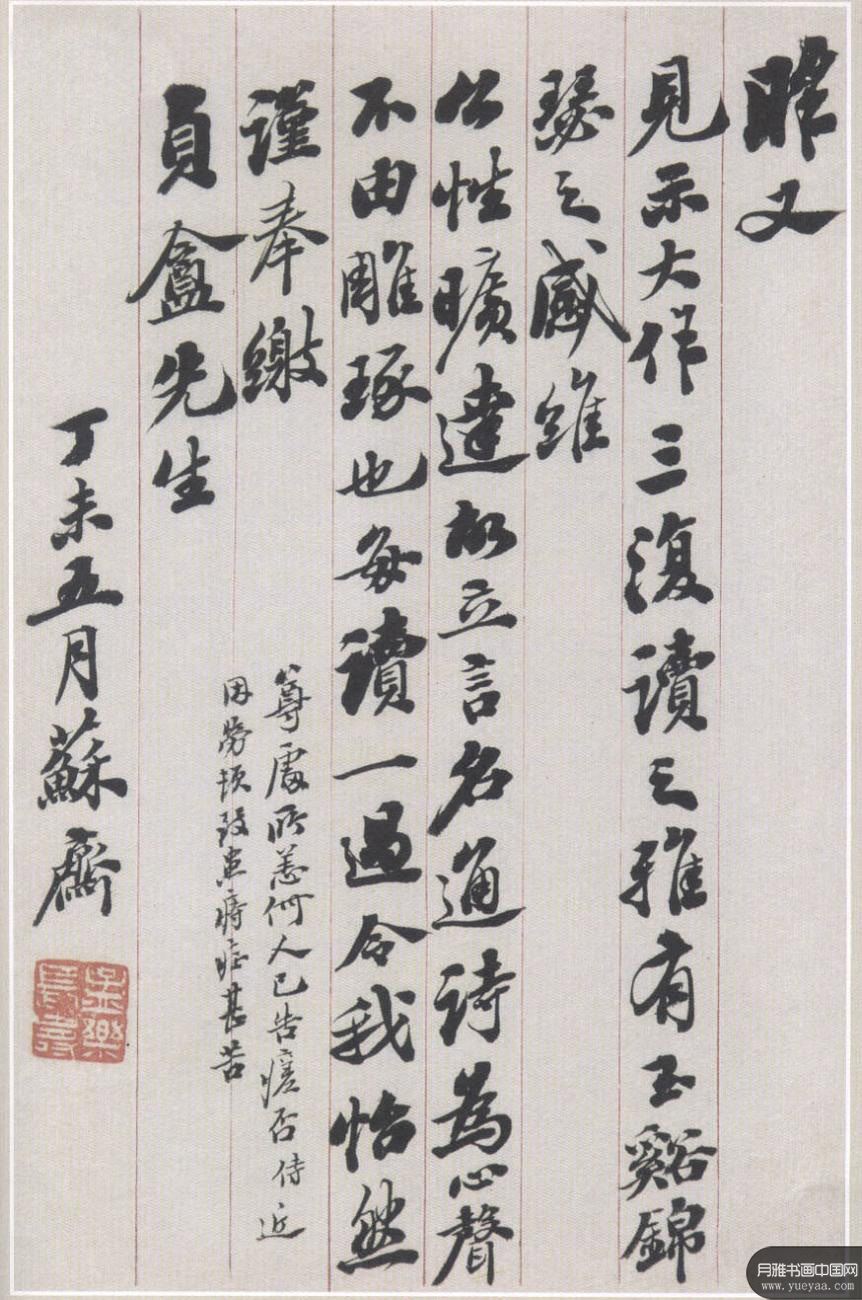 昨又
見示大作三復讀之雅有玉谿錦
瑟之感維
公性曠達故立言名通詩為心聲
不由雕琢也每讀一過令我怡然
謹奉繳
貞盦先生
尊處所恙何人已告瘥否侍近
因勞頓致患痔症甚苦
丁未五月蘇齋
長樂
月雅书画中国网
www.yueyaa.com